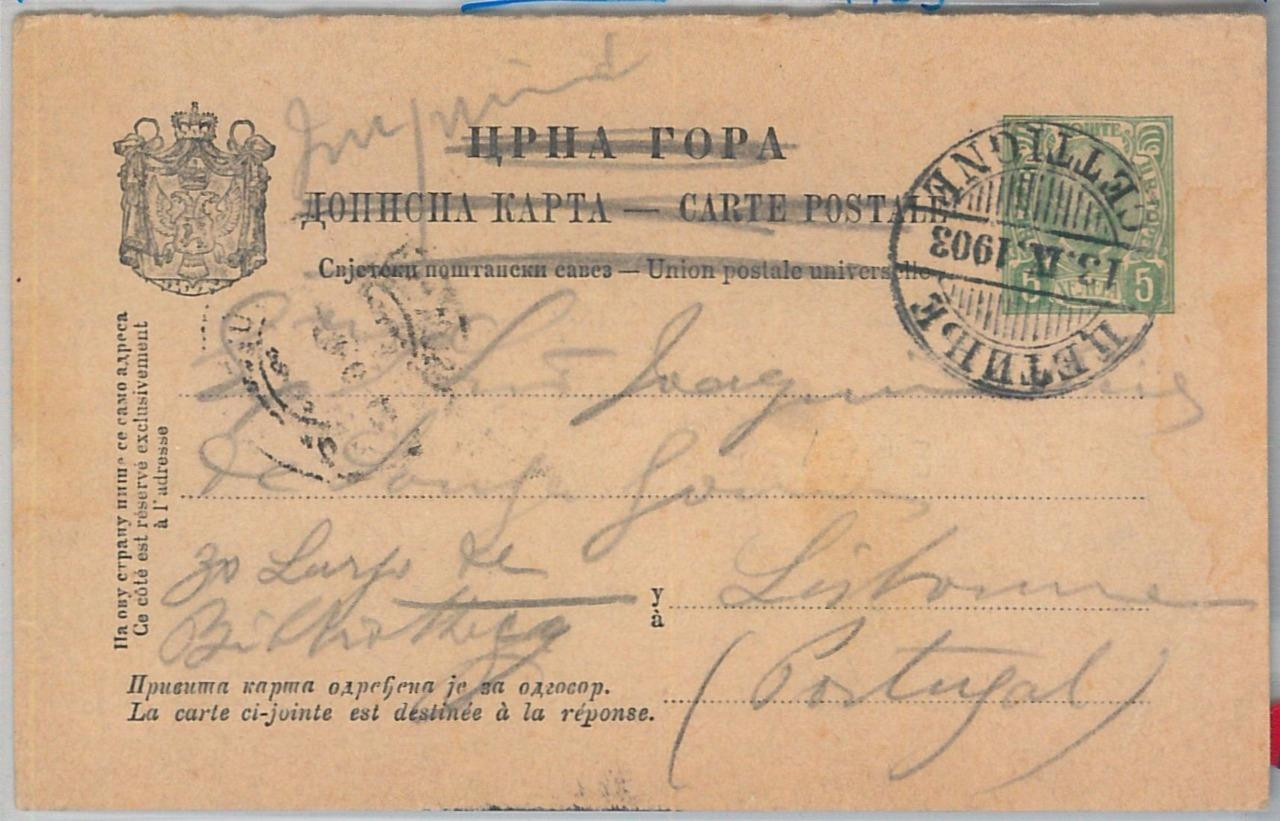 Imprimé
ЦРНА ГОРА
ДОПИСНА КАРТА — CARTE POSTALE
Свјетски поштански савез — Union postale universelle
CETTIGNE
13.IX.1903
ЦЕТИЊЕ
5 5
На ову страну пише се само адреса
Ce côté est réservé exclusivement
à l'adresse
Joaquim
de Souza
30 Largo de
Bibliotheca
у
à
Lisbonne
(Portugal)
Привита карта одређена је за одговор.
La carte ci-jointe est destinée à la réponse.